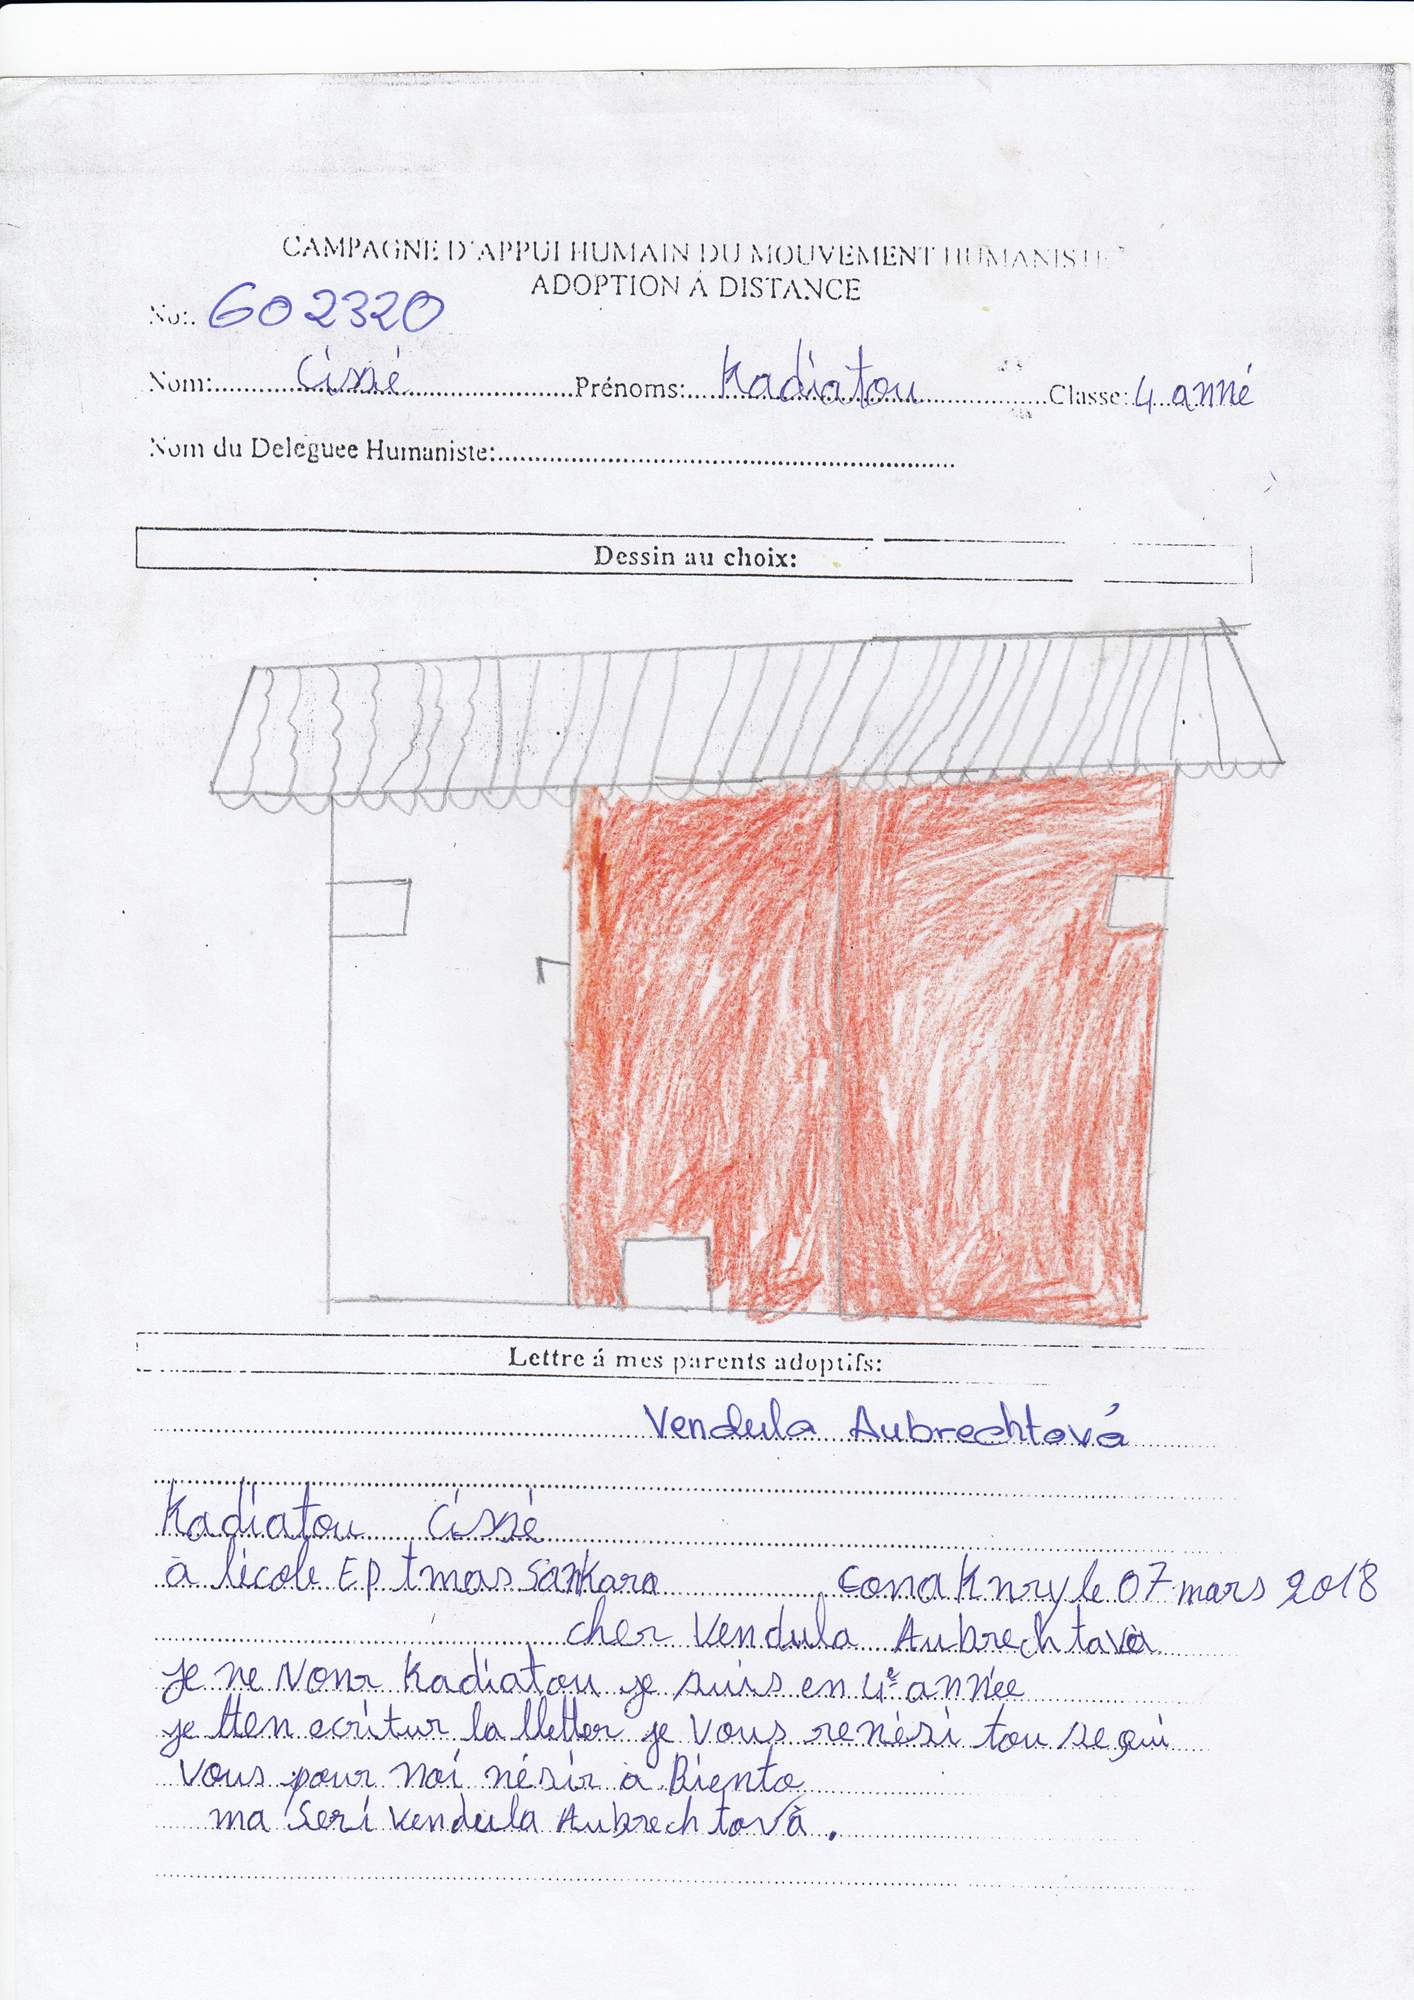 CAMPAGNE D'APPUI HUMAIN DU MOUVEMENT HUMANISTE
ADOPTION Á DISTANCE
No: 602320
Nom: Cissé Prénoms: Kadiatou Classe: 4 anné
Nom du Deleguee Humaniste:
Dessin au choix:
Lettre á mes parents adoptifs:
Vendula Aubrechtová
Kadiatou Cissé
à lécole EP tmas Sankara conaKnry le 07 mars 2018
cher Vendula Aubrechtavà
je ne Nonr Kadiatou je suis en 4e année
je tten ecritur la lletter je vous renési tou se qui
vous pour noi nésir a Biento
ma seri Vendula Aubrechtovà.